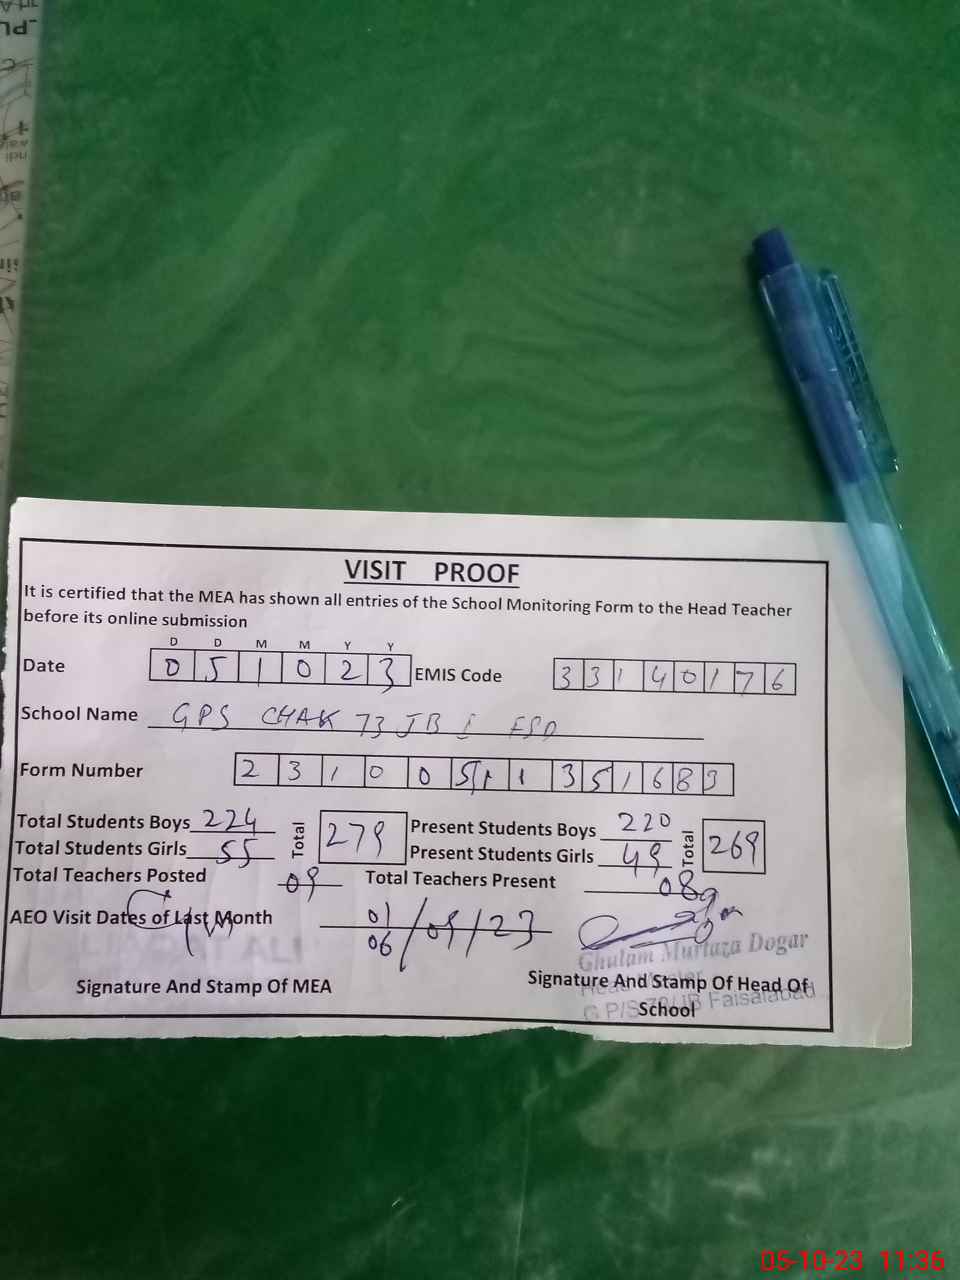 VISIT PROOF
It is certified that the MEA has shown all entries of the School Monitoring Form to the Head Teacher
before its online submission
D D M M Y Y
Date 0 5 1 0 2 3 EMIS Code 3 3 1 4 0 1 7 6
School Name GPS CHAK 73 JB I FSD
Form Number 2 3 1 0 0 5 1 1 3 5 1 6 8 9
Total Students Boys 224 Total 279 Present Students Boys 220 Total 269
Total Students Girls 55 Present Students Girls 49
Total Teachers Posted 09 Total Teachers Present 08
AEO Visit Dates of Last Month 01 06 /09/23
Ghulam Murtaza Dogar
Signature And Stamp Of MEA Signature And Stamp Of Head Of
School
G P/S JB Faisalabad
05-10-23 11:36